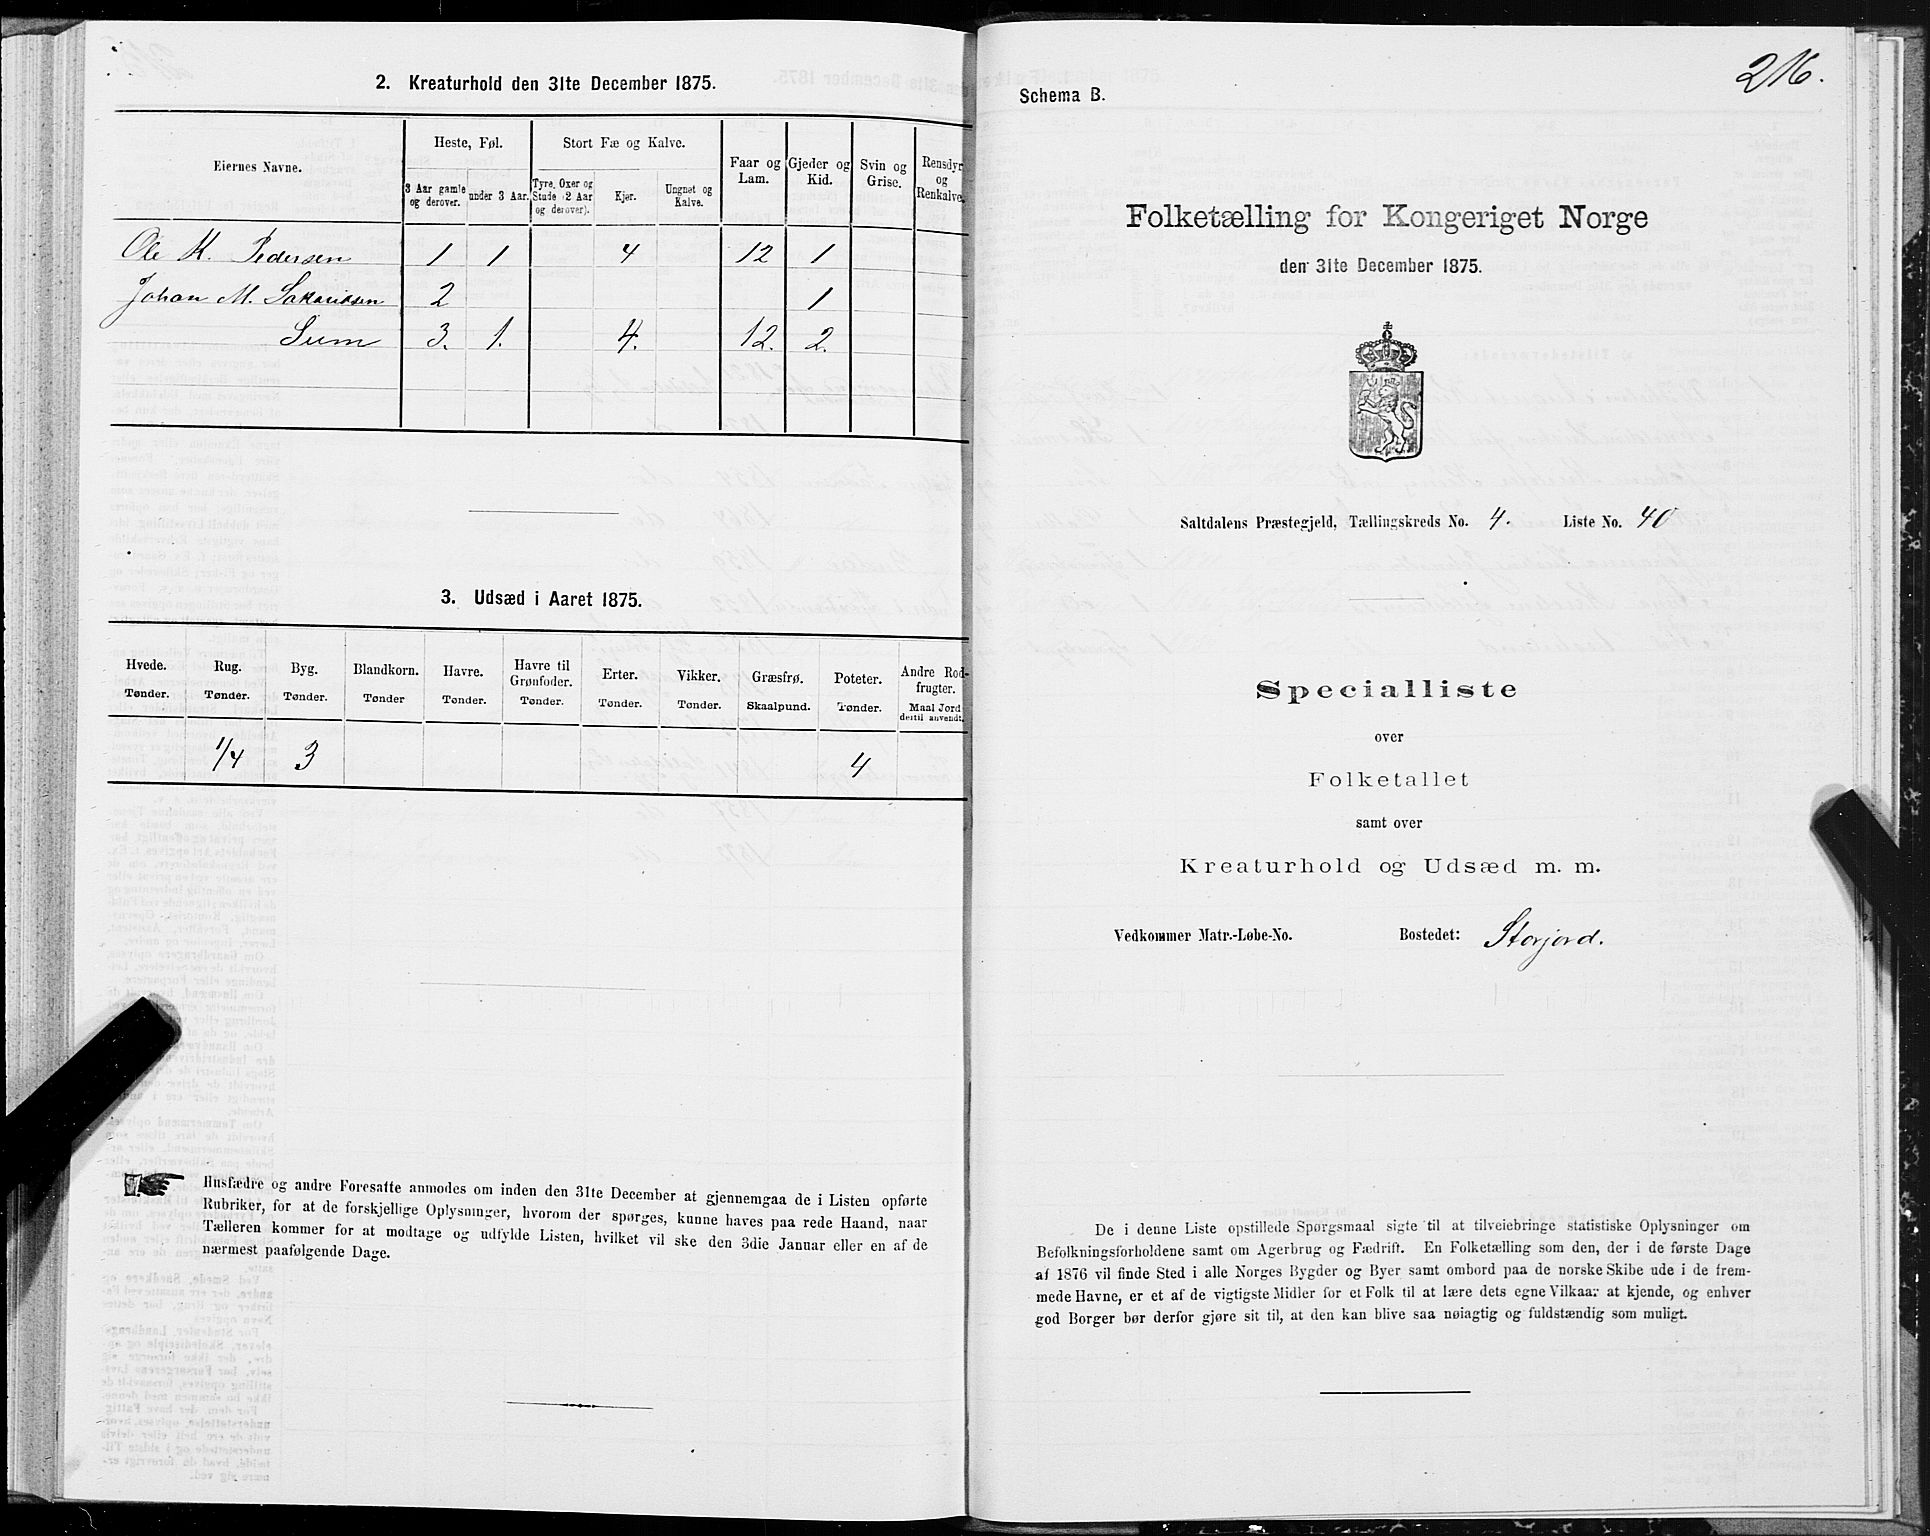 2. Kreaturhold den 31te December 1875.
Eiernes Navne.
Heste, Føl.
Stort Fæ og Kalve.
Faar og Lam.
Gjeder og Kid.
Svin og Grise.
Rensdyr og Renkalve.
3 Aar gamle og derover.
under 3 Aar.
Tyre, Oxer og Stude (2 Aar og derover).
Kjør.
Ungnet og Kalve.
Ole K. Pedersen 1 1 4 12 1
Johan M. Sakariasen 2 1
Sum 3. 1. 4. 12. 2.
3. Udsæd i Aaret 1875.
Hvede. Rug. Byg. Blandkorn. Havre. Havre til Grønfoder. Erter. Vikker. Græsfrø. Poteter. Andre Rodfrugter.
Tønder. Tønder. Tønder. Tønder Tønder. Tønder. Tønder. Tønder. Skaalpund. Tønder. Maal Jord dertil anvendt.
1/4 3 4
Husfædre og andre Foresatte anmodes om inden den 31te December at gjennemgaa de i Listen opførte
Rubriker, for at de forskjellige Oplysninger, hvorom der spørges, kunne haves paa rede Haand, naar
Tælleren kommer for at modtage og udfylde Listen, hvilket vil ske den 3die Januar eller en af de
nærmest paafølgende Dage.
216.
Schema B.
Folketælling for Kongeriget Norge
den 31te December 1875.
Saltdalens Præstegjeld, Tællingskreds No. 4. Liste No. 40
Specialliste
over
Folketallet
samt over
Kreaturhold og Udsæd m. m.
Vedkommer Matr.-Løbe-No. Bostedet: Storjord.
De i denne Liste opstillede Spørgsmaal sigte til at tilveiebringe statistiske Oplysninger om
Befolkningsforholdene samt om Agerbrug og Fædrift. En Folketælling som den, der i de første Dage
af 1876 vil finde Sted i alle Norges Bygder og Byer samt ombord paa de norske Skibe ude i de frem-
mede Havne, er et af de vigtigste Midler for et Folk til at lære dets egne Vilkaar at kjende, og enhver
god Borger bør derfor gjøre sit til, at den kan blive saa nøiagtig og fuldstændig som muligt.